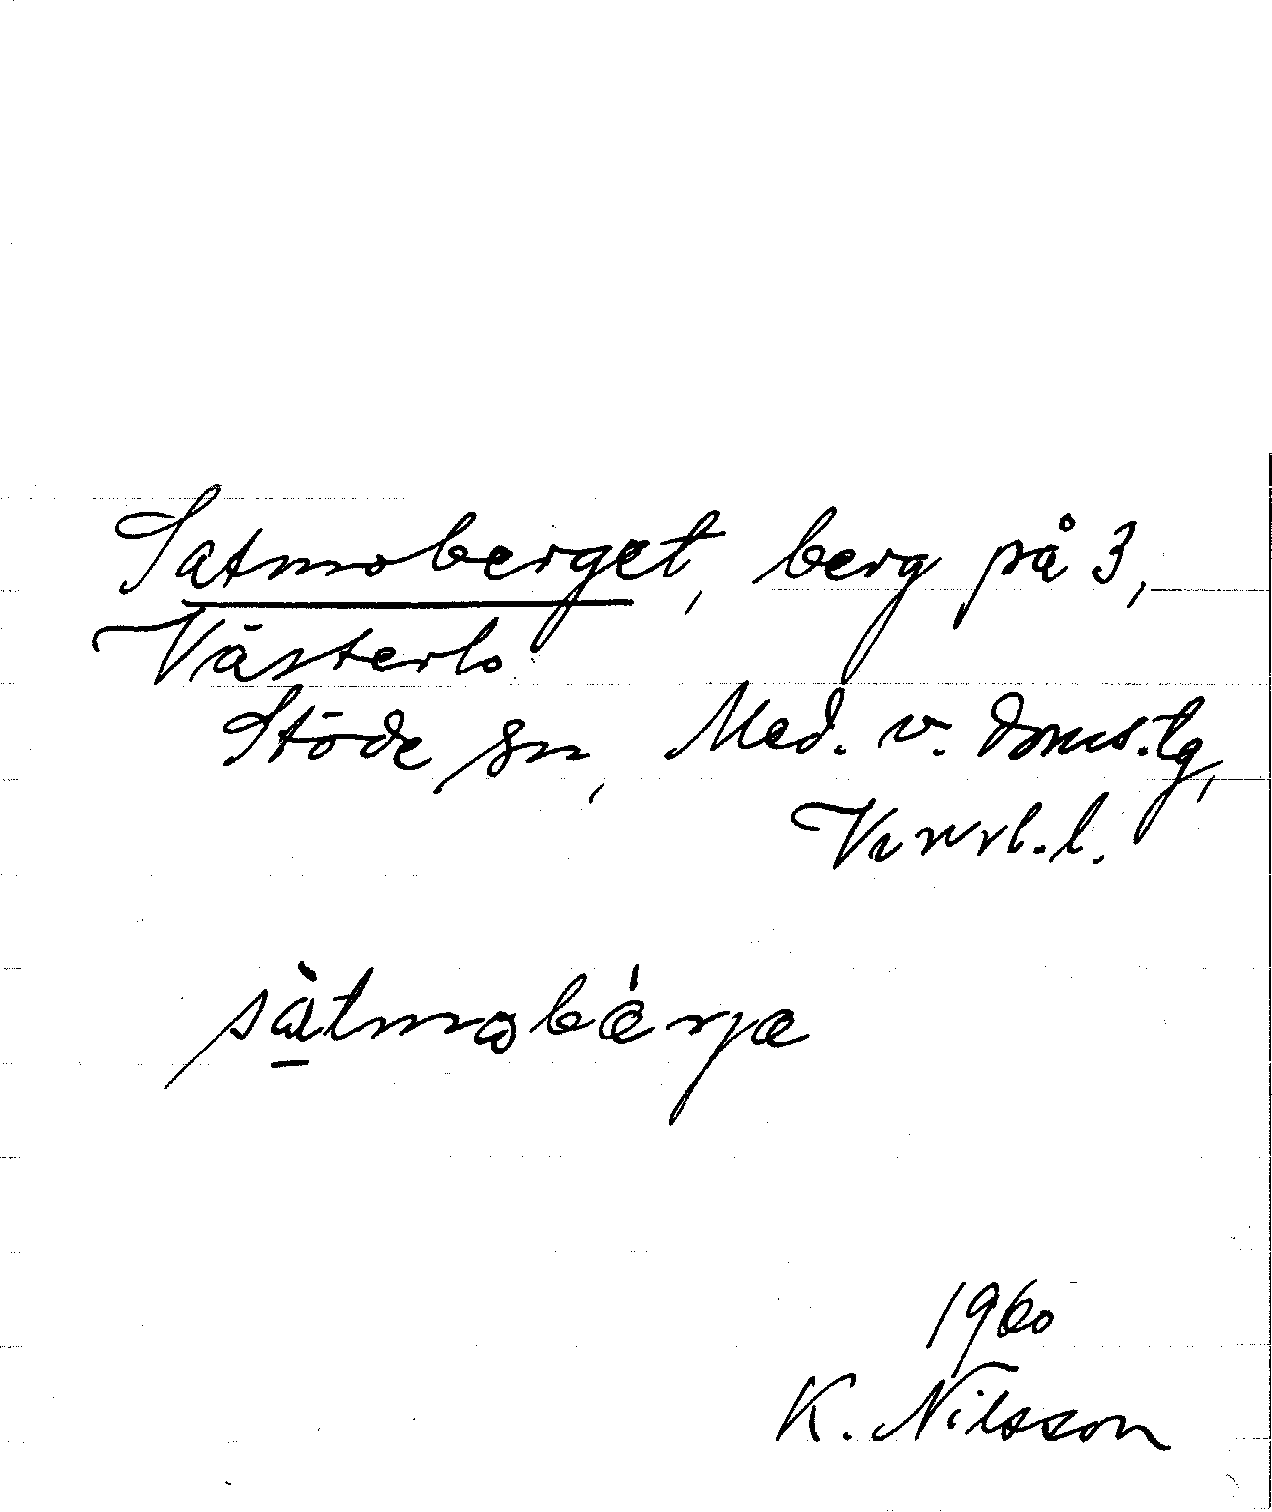 Satmoberget, berg på 3,
Västerlo
Stöde sn, Med. v. doms.tg,
Vnrrl.l.
sàtmobǽrjə
1960
K. Nilsson